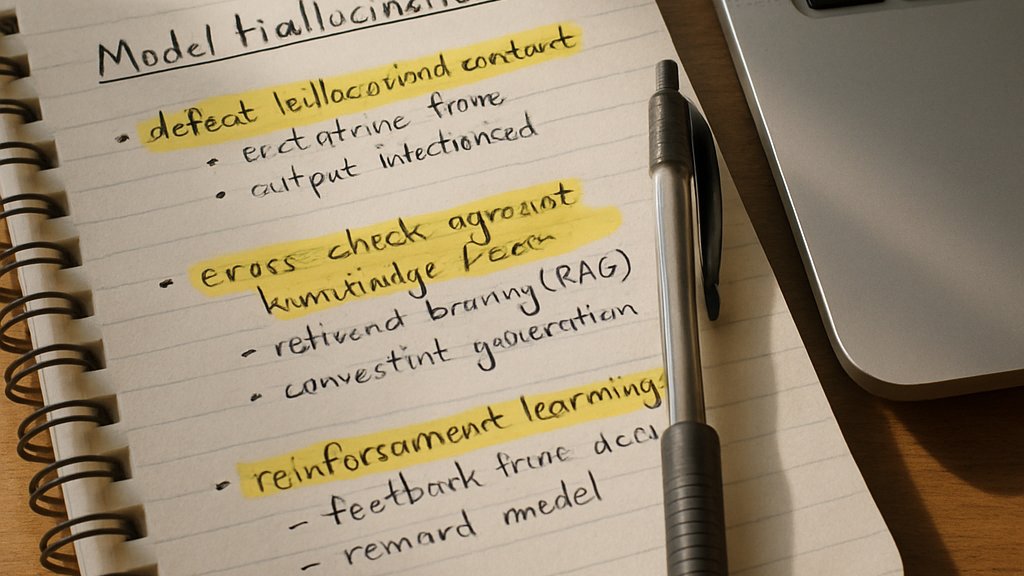 Model
defeat leillacoviond contart
erctatrine frowe
output intectionced
eross check agrosint
kumutinidge
retivend branny (RAG)
convestint gaoceration
reinforsament learming
feetback frine
remard medel